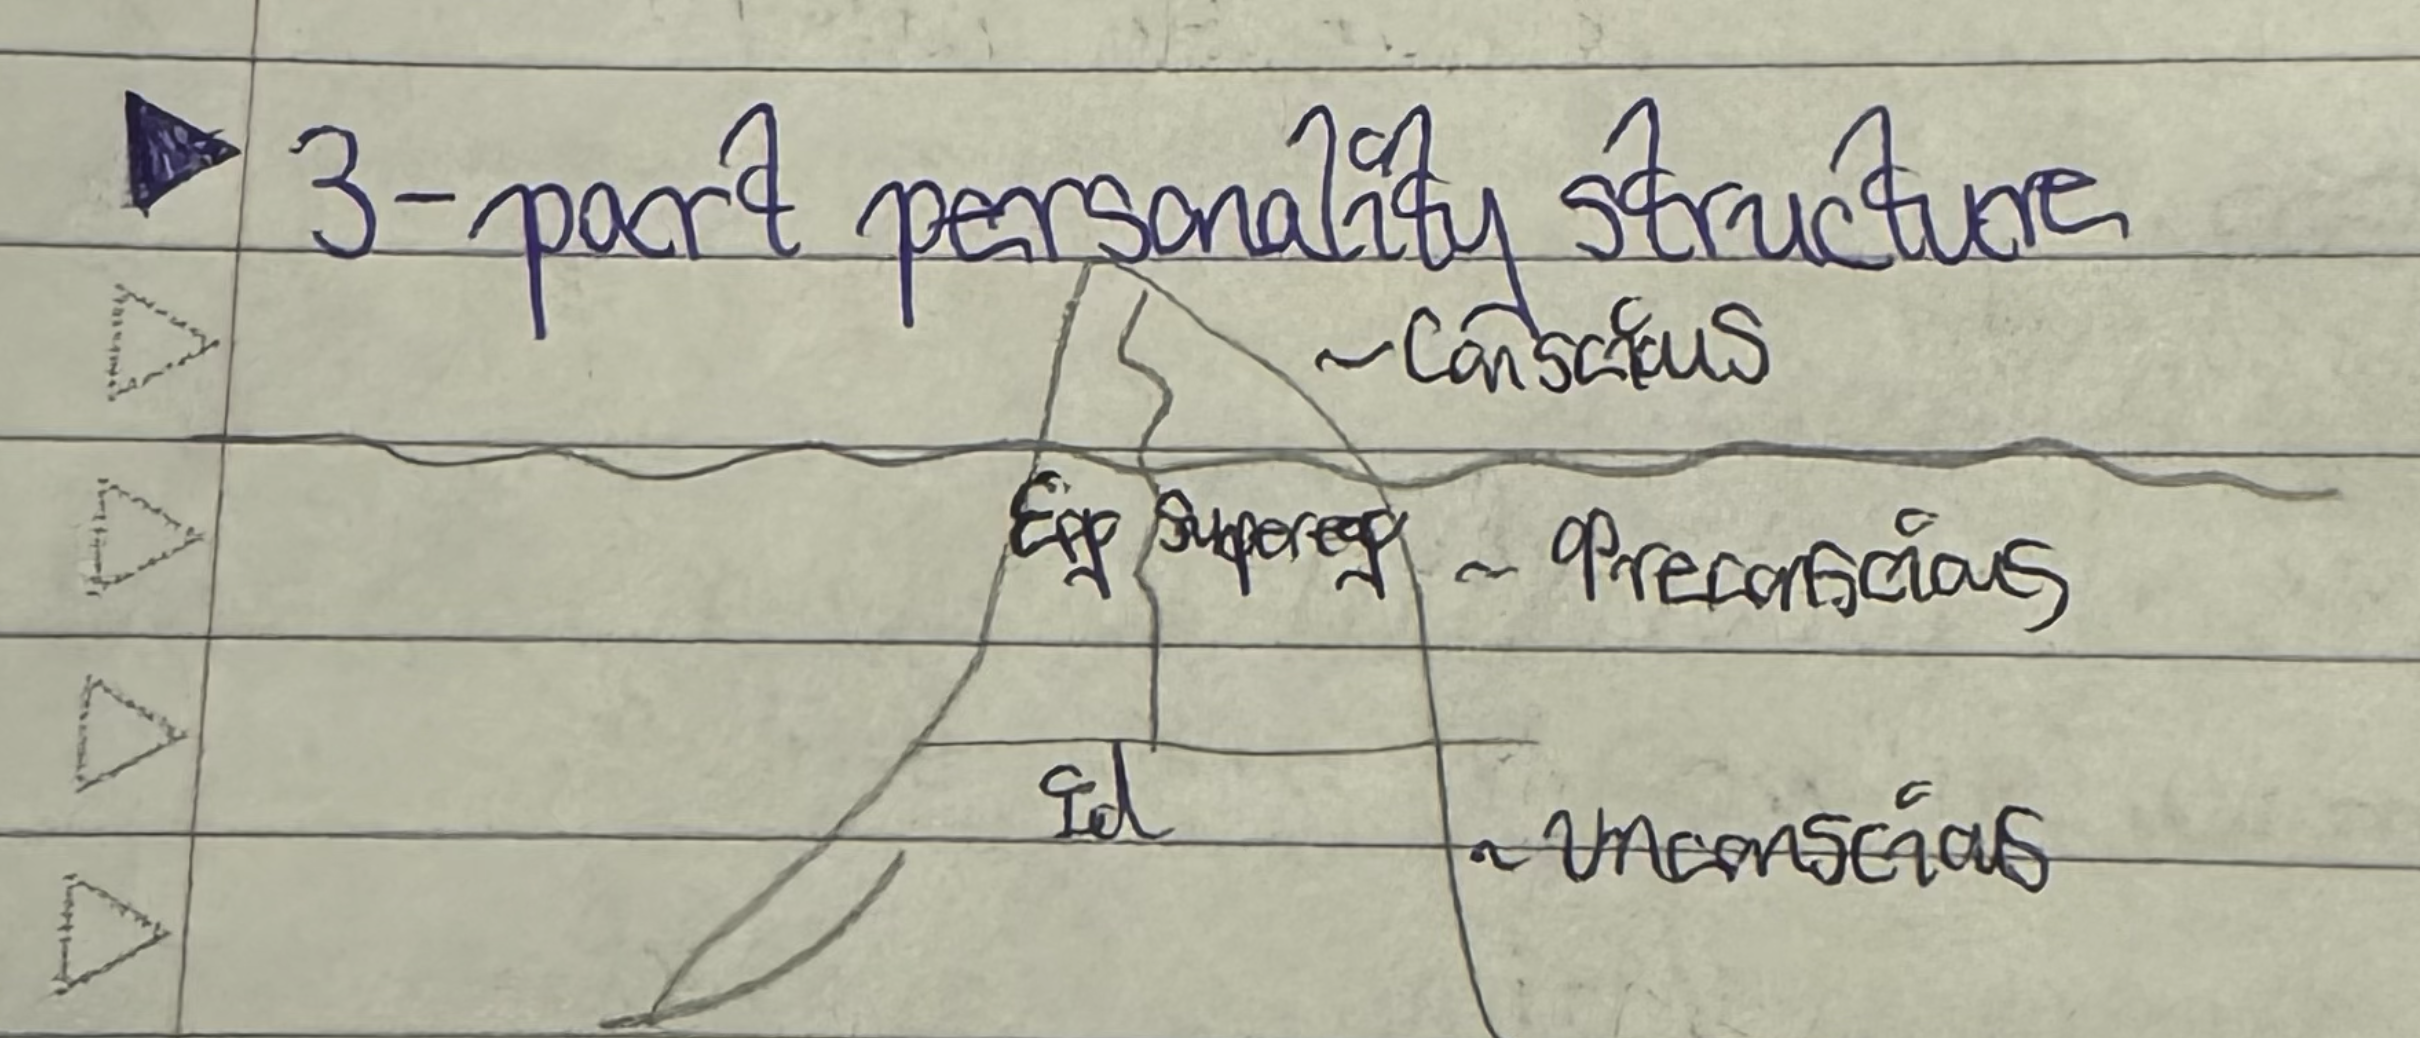 3-part personality structure
~Conscious
Ego Superego ~ Preconscious
Id
~ Unconscious